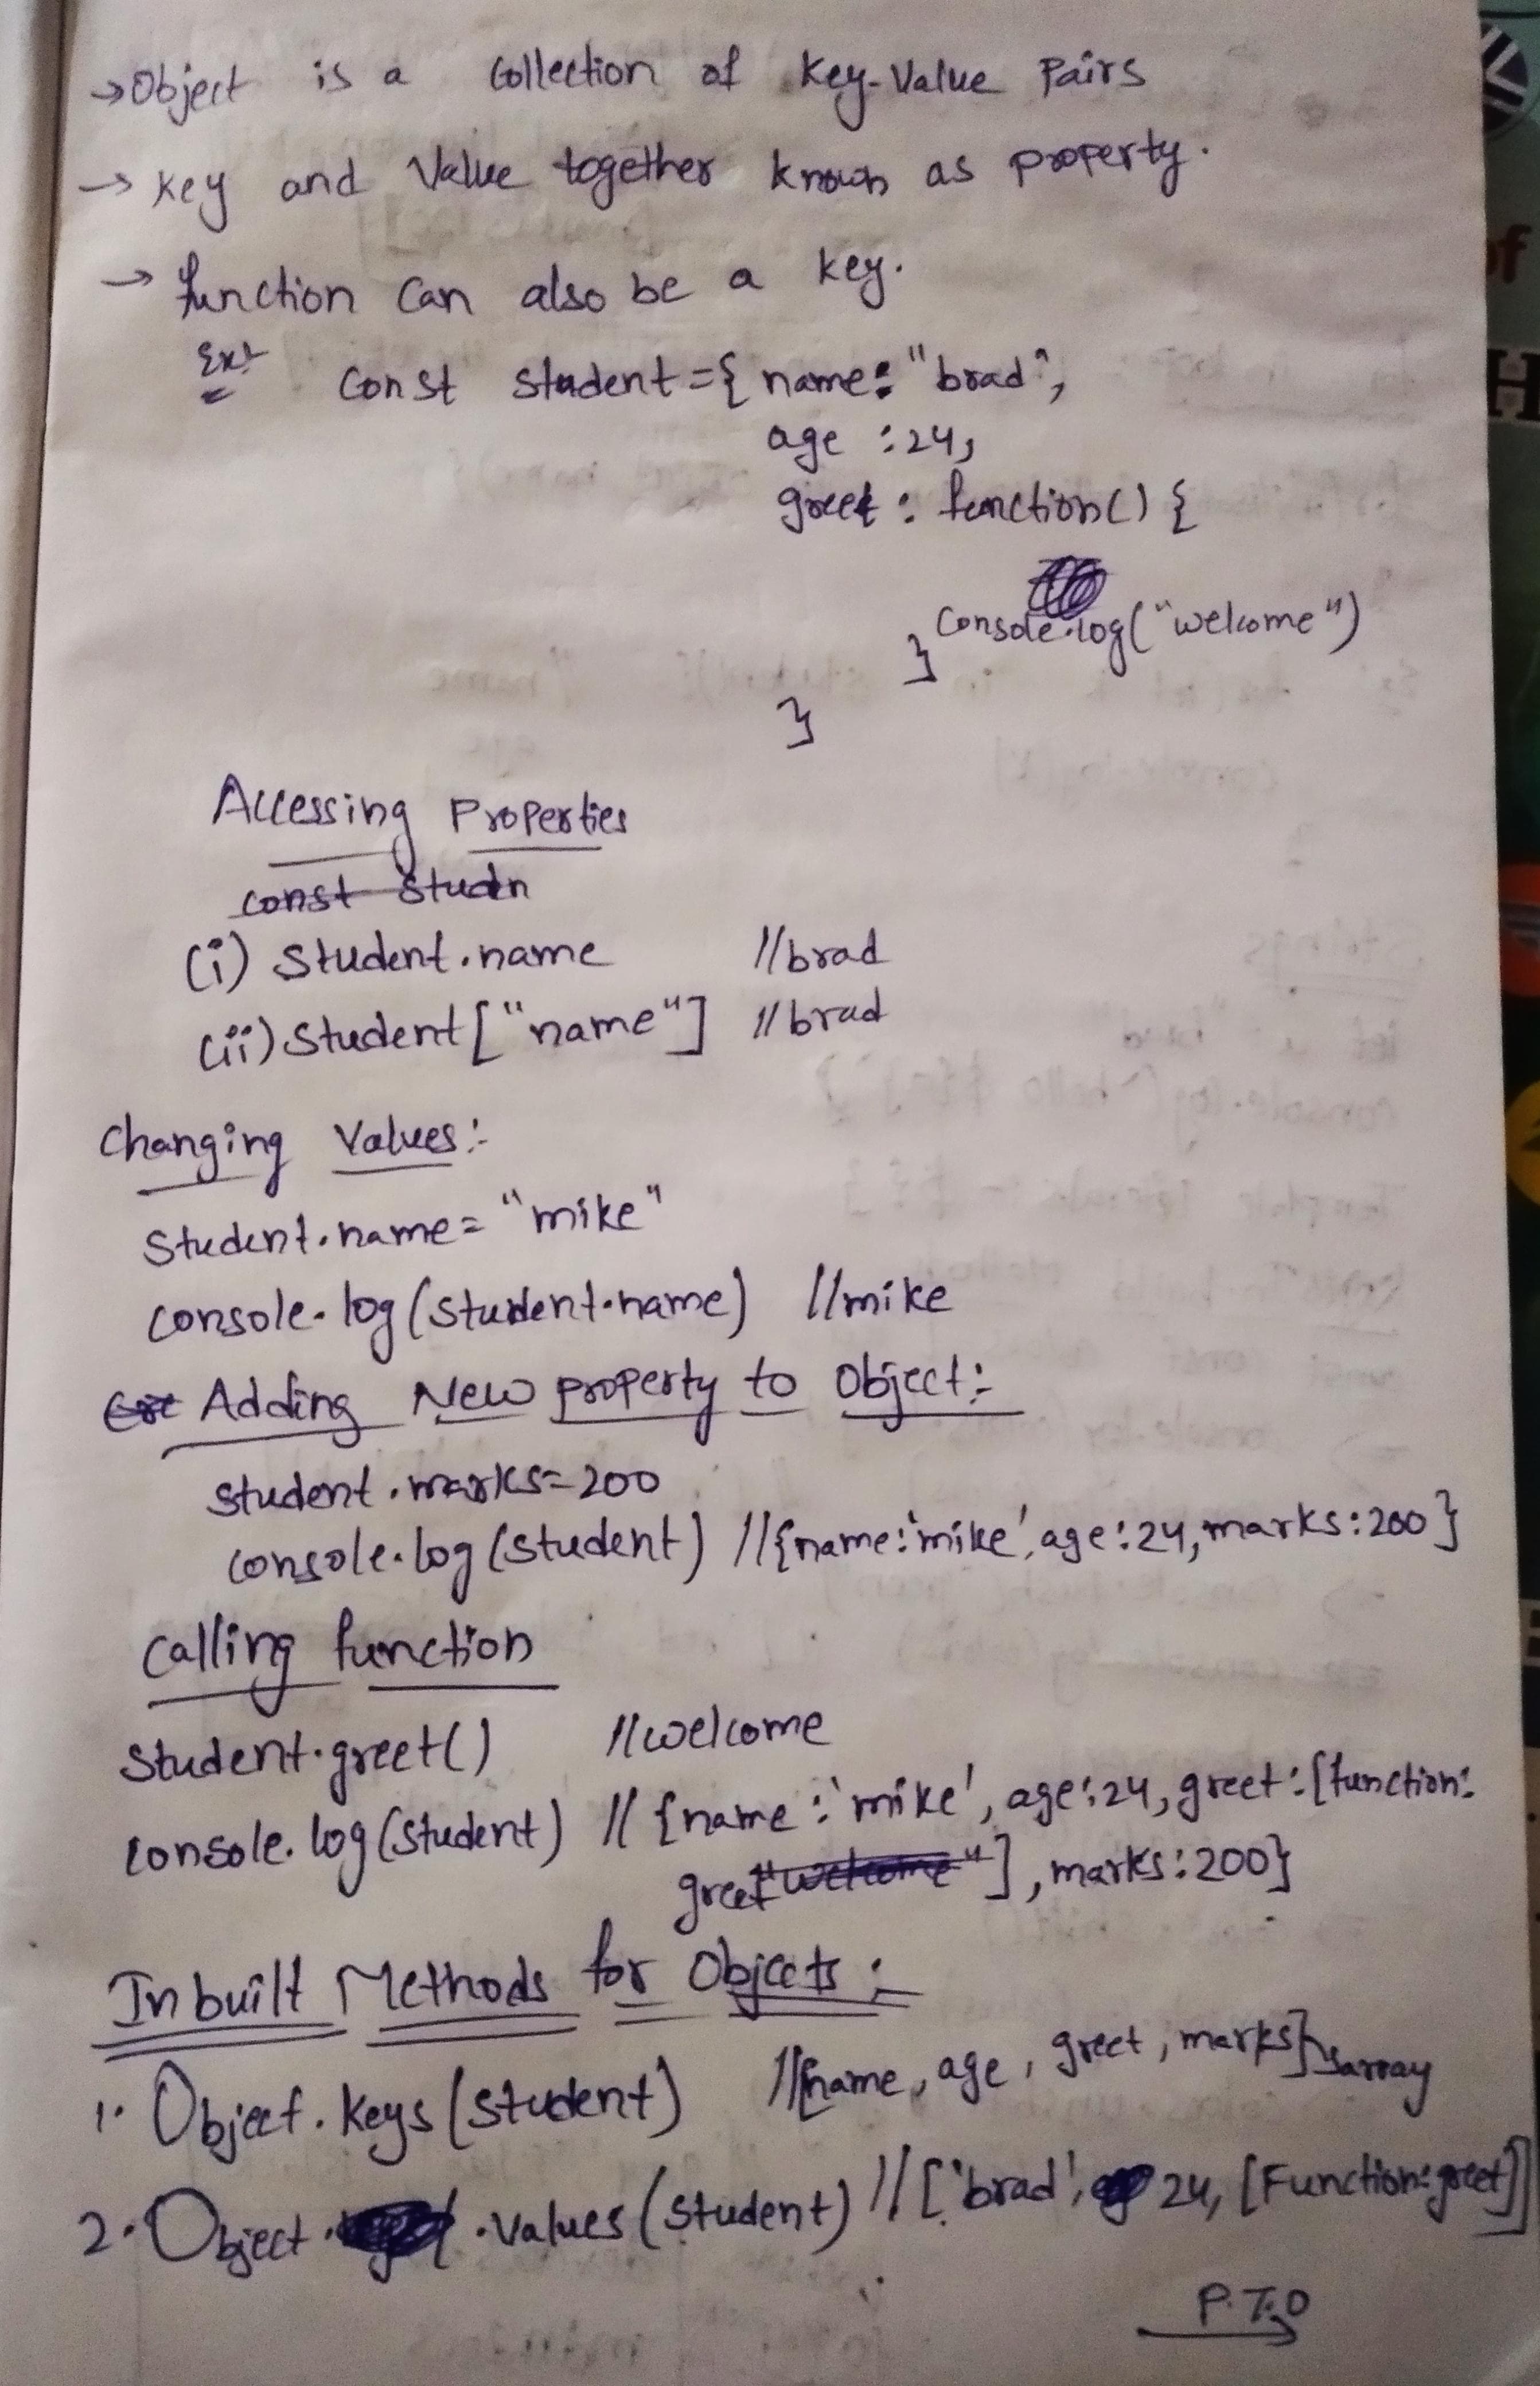 →Object is a Collection of Key-Value Pairs
→ Key and Value together known as property.
→ function can also be a key.
Ex:- const student={ name: "brad",
age :24,
greet : function() {
console.log("welcome")
}
}
Accessing Properties
const studn
(i) student.name //brad
(ii) student["name"] //brad
Changing Values:-
Student.name= "mike"
console.log(student.name) //mike
Adding New property to Object:-
student.marks=200
console.log(student) //{name:'mike', age:24, marks:200}
Calling function
Student.greet() //welcome
console.log(student) // {name:'mike', age:24, greet:[function:
greet"welcome"], marks:200}
Inbuilt Methods for Objects:
1. Object.keys(student) //[name, age, greet, marks]→array
2. Object.values(student) //['brad', 24, [Function:greet]]
P.T.O